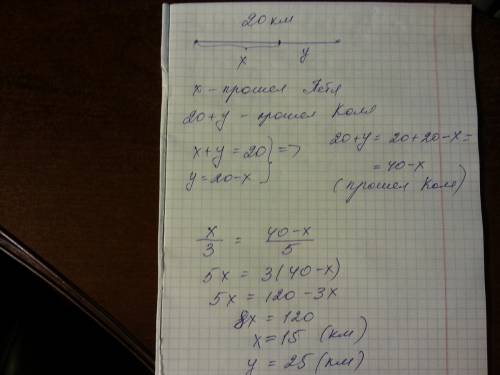 20 км
x y
x - прошел Петя
20+y - прошел Коля
x+y=20 } =>
y=20-x
20+y = 20+20-x=
= 40-x
(прошел Коля)
x/3 = 40-x/5
5x = 3(40-x)
5x = 120-3x
8x = 120
x=15 (км)
y = 25 (км)